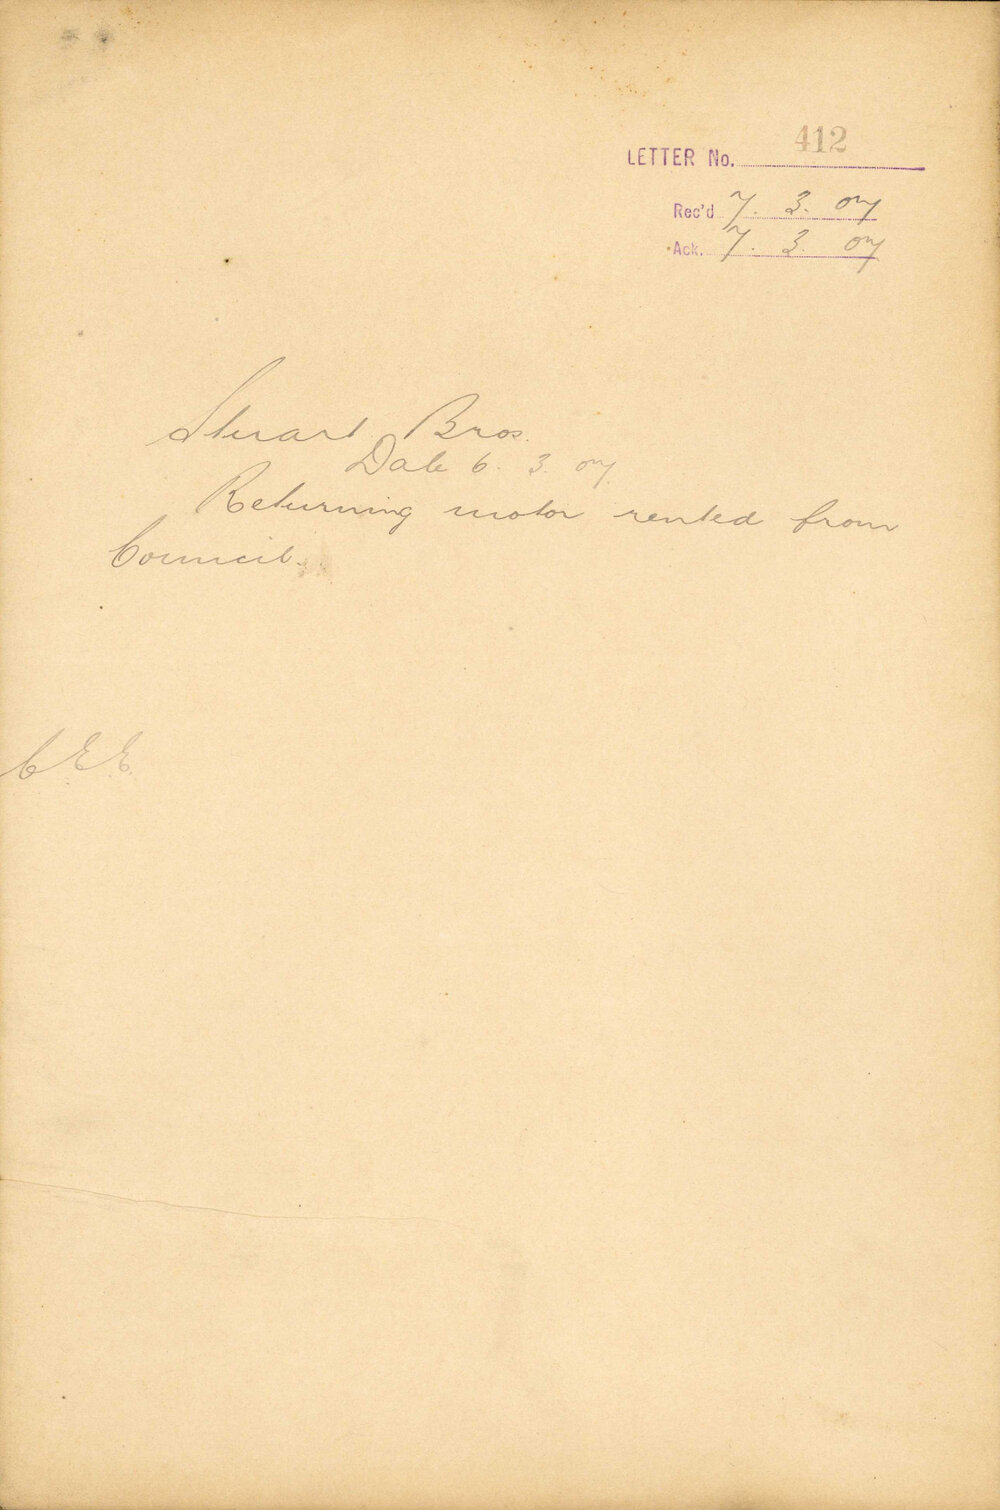 LETTER No. 412
Rec'd 7. 3. 07
Ack. 7. 3. 07
Stuart Bros.
Date 6. 3. 07.
Returning motor rented from
Council.
C.E.E.